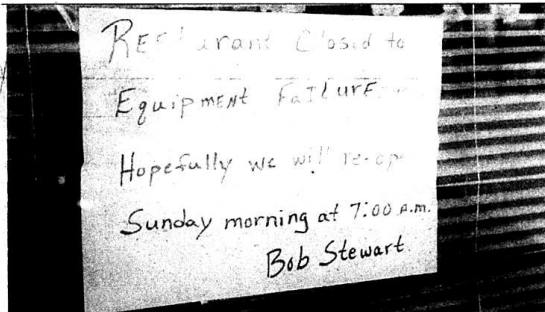 Restaurant Closed to
Equipment Failure
Hopefully we will re-op
Sunday morning at 7:00 A.M.
Bob Stewart